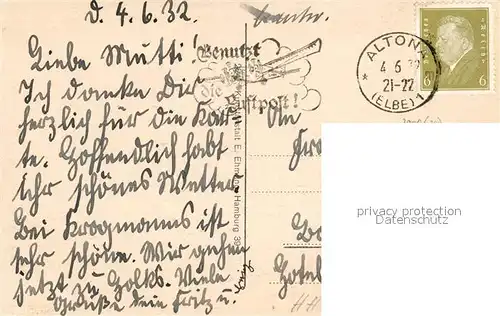 d. 4.6.32.
Liebe Mutti!
Ich danke Dir
herzlich für die Kar
te. Hoffentlich habt
ihr schönes Wetter.
Bei Krogmanns ist
sehr schöne. Wir gehen
jetzt zu Holks. Viele
Grüße dein Fritz u.
Benutzt
die
Luftpost!
ALTONA
4 6 32
21-22
* (ELBE) 1
6 6
An
Hamburg 39
privacy protection
Datenschutz